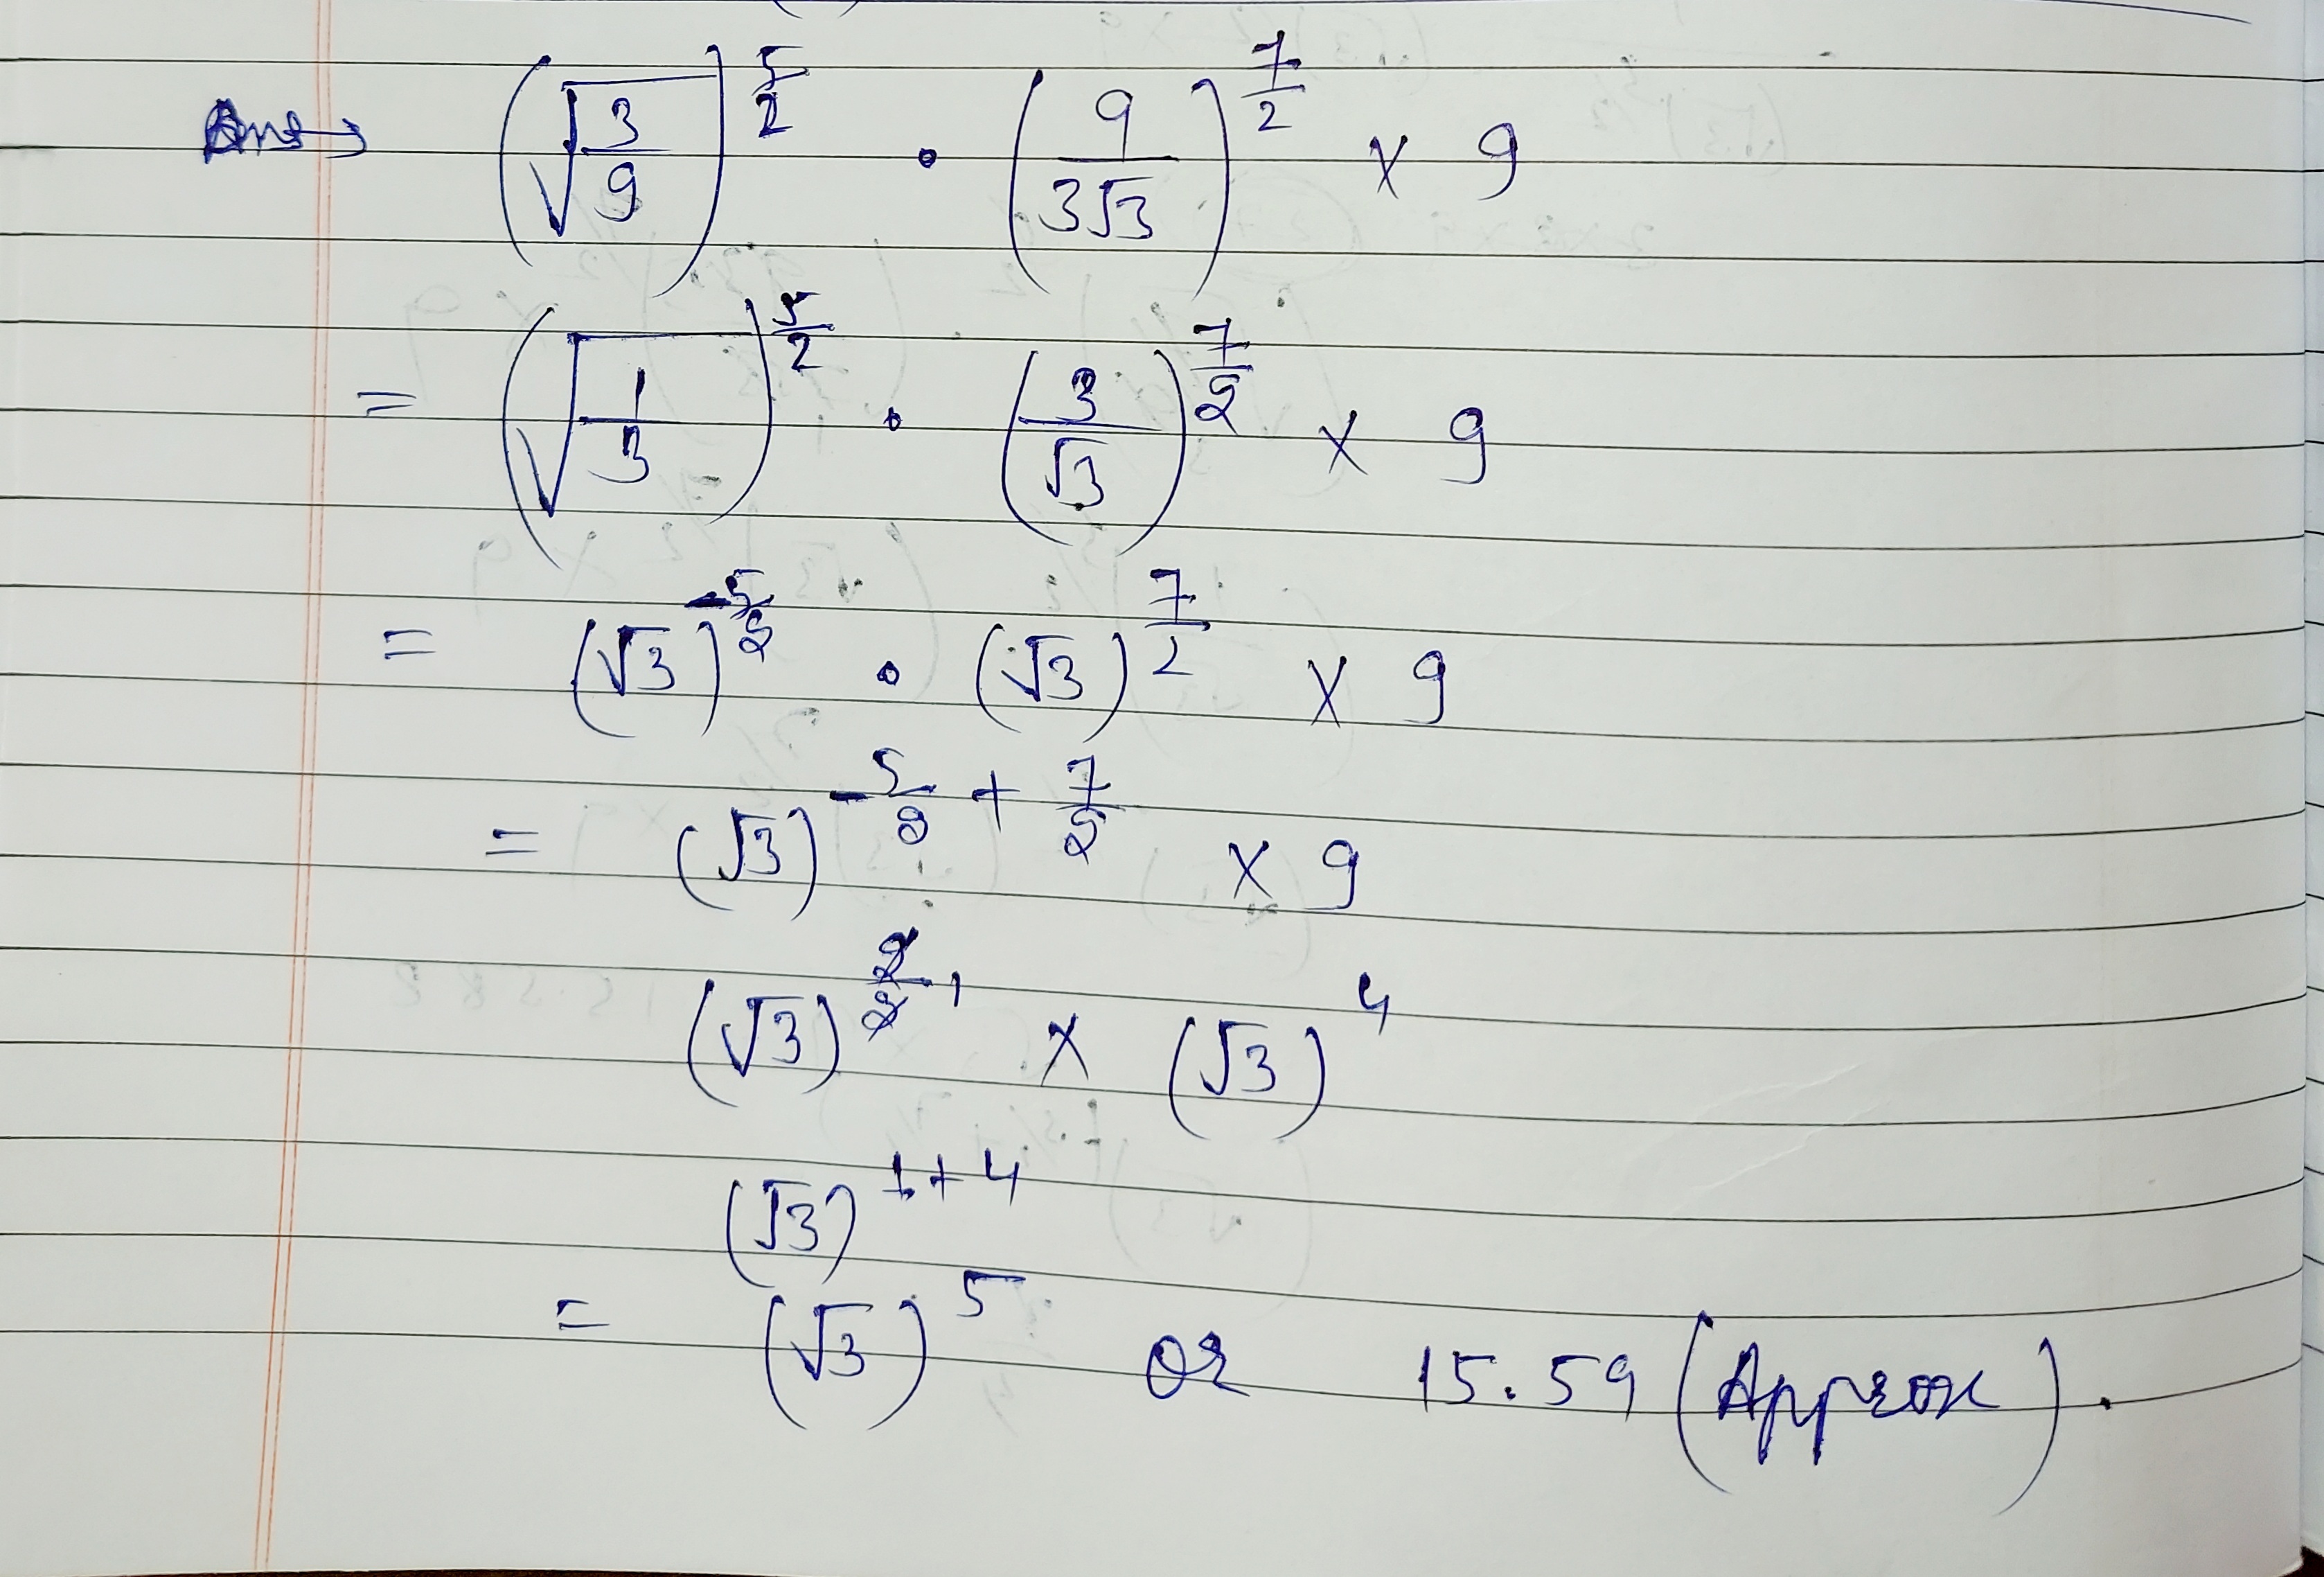 Ans → (√(3/9))^(5/2) · (9/(3√3))^(7/2) × 9
= (√(1/3))^(5/2) · (3/√3)^(7/2) × 9
= (√3)^(-5/2) · (√3)^(7/2) × 9
= (√3)^(-5/2 + 7/2) × 9
(√3)^(2/2) 1 × (√3)^4
(√3)^(1+4)
= (√3)^5 or 15.59 (Approx).